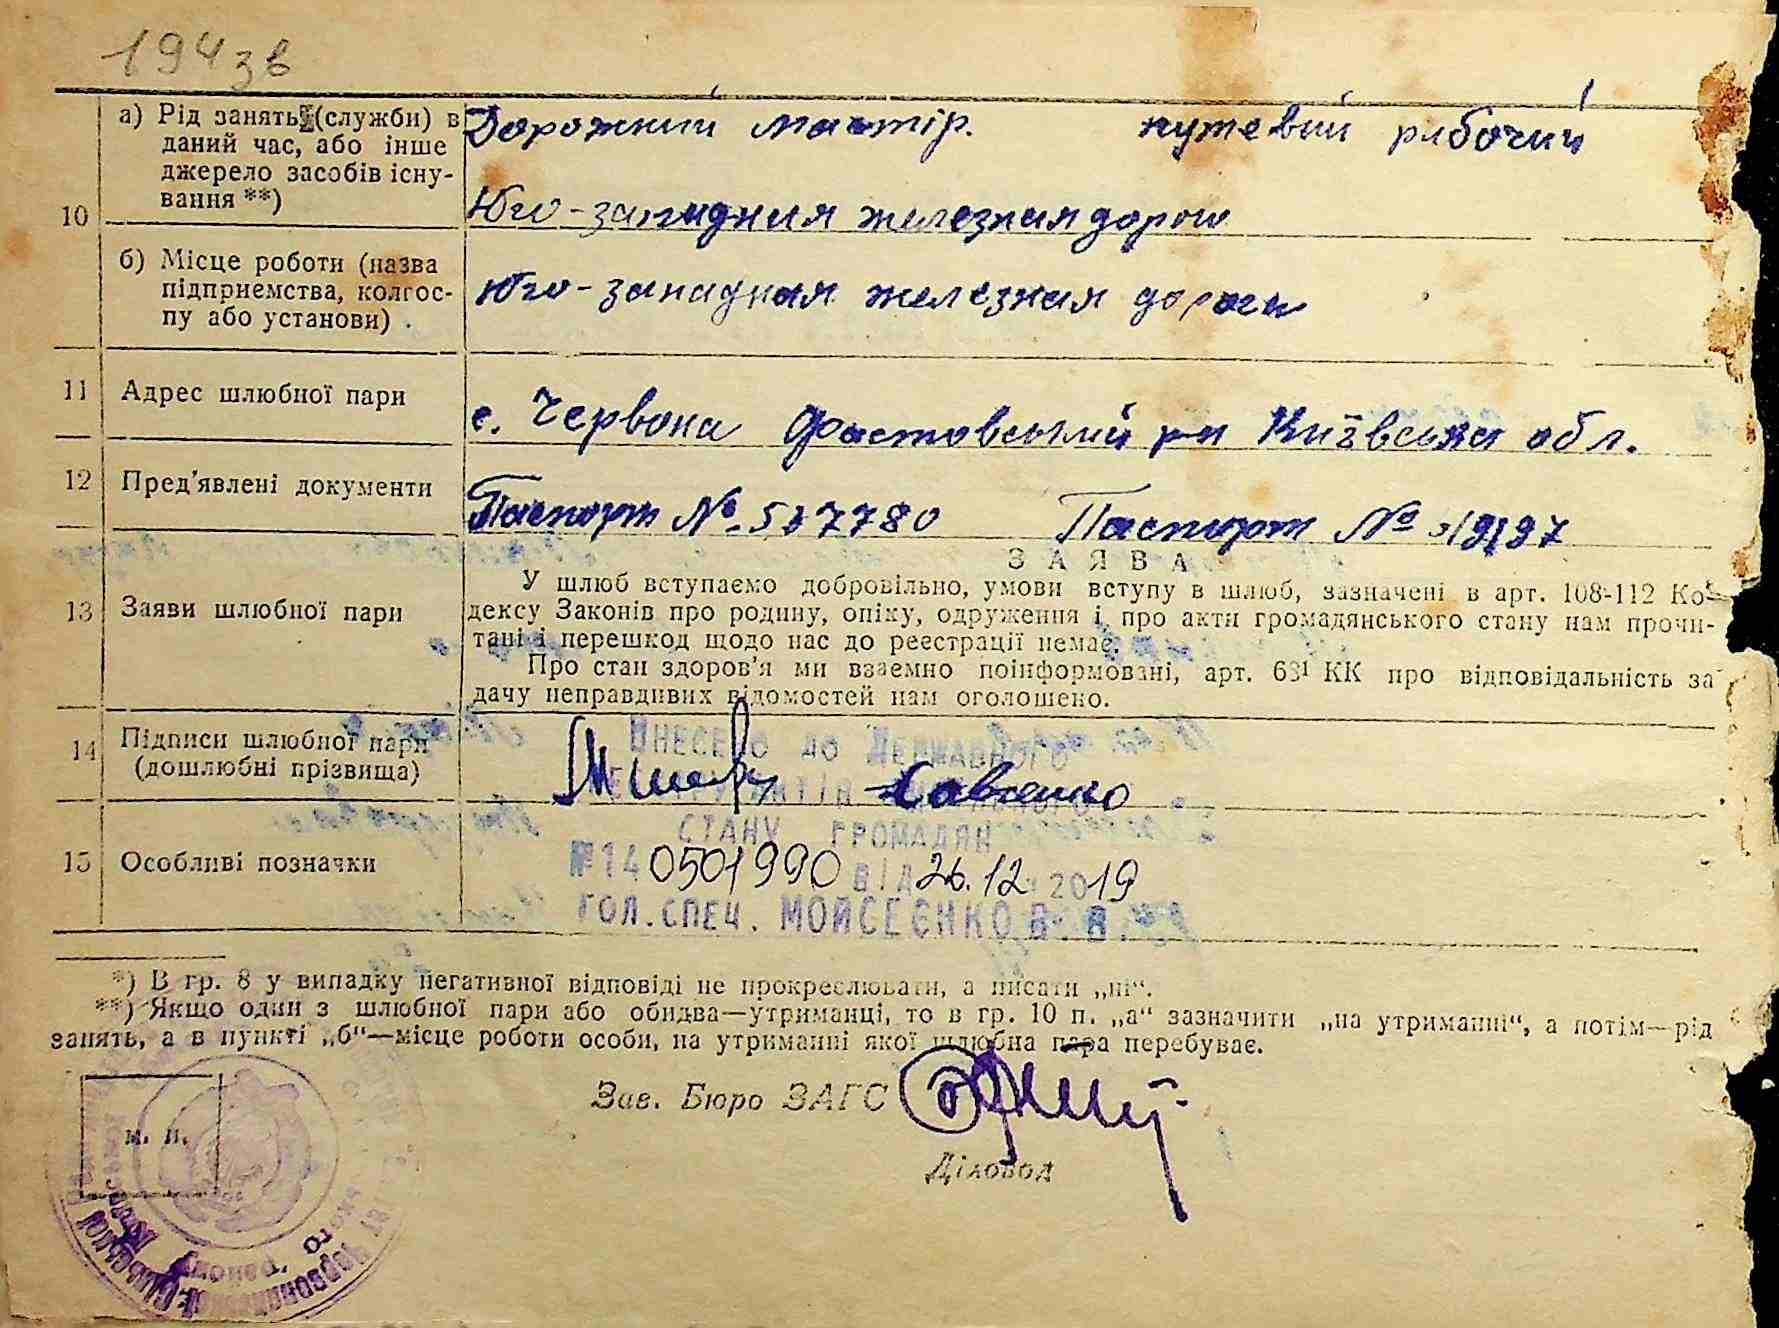 194 зв
а) Рід занять (служби) в Дорожний мастір. путевий рабочий
даний час, або інше
джерело засобів існу-
вання **) Юго-западная железная дорога
10
б) Місце роботи (назва
підприємства, колгос- Юго-западная железная дорога
пу або установи)
11 Адрес шлюбної пари с. Червона Фастовський р-н Київська обл.
12 Пред'явлені документи Паспорт №. 537780 Паспорт №
З А Я В А
У шлюб вступаємо добровільно, умови вступу в шлюб, зазначені в арт. 108-112 Ко-
13 Заяви шлюбної пари дексу Законів про родину, опіку, одруження і про акти громадянського стану нам прочи-
тані і перешкод щодо нас до реєстрації немає.
Про стан здоров'я ми взаємно поінформовані, арт. 63¹ КК про відповідальність за
дачу неправдивих відомостей нам оголошено.
14 Підписи шлюбної пари
(дошлюбні прізвища) Савченко
ВНЕСЕНО ДО ДЕРЖАВНОГО
СТАНУ ГРОМАДЯН
15 Особливі позначки №14 0501990 ВІД 26.12 2019
ГОЛ.СПЕЦ. МОЙСЕЄНКО В. В.
*) В гр. 8 у випадку негативної відповіді не прокреслювати, а писати „ні“.
**) Якщо один з шлюбної пари або обидва—утриманці, то в гр. 10 п. „а“ зазначити „на утриманні“, а потім—рід
занять, а в пункті „б“—місце роботи особи, на утриманні якої шлюбна пара перебуває.
Зав. Бюро ЗАГС
м. п.
Діловод